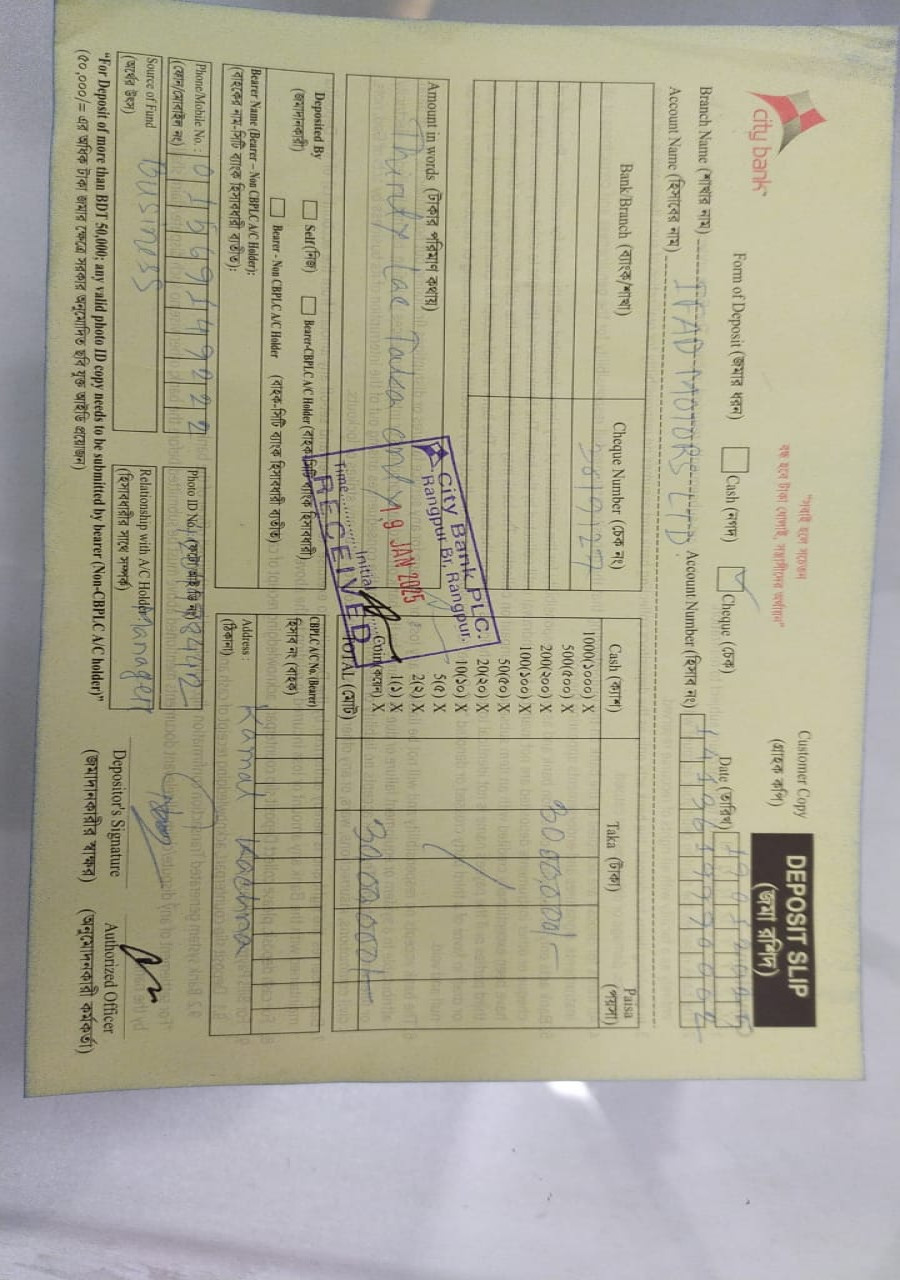 city bank
"সবাই হবে সচেতন
বন্ধ হবে টাকা খোলাই, সন্ত্রাসীদের অর্থায়ন"
Customer Copy
(গ্রাহক কপি)
DEPOSIT SLIP
(জমা রশিদ)
Form of Deposit (জমার ধরন)
Cash (নগদ)
Cheque (চেক)
Date (তারিখ)
19012025
Branch Name (শাখার নাম)
Account Name (হিসাবের নাম)
IFAD MOTORS LTD.
Account Number (হিসাব নং)
Bank/Branch (ব্যাংক/শাখা)
Cheque Number (চেক নং)
Cash (ক্যাশ)
Taka (টাকা)
Paisa (পয়সা)
1000(১০০০) X
500(৫০০) X
200(২০০) X
3000000/-
100(১০০) X
50(৫০) X
20(২০) X
10(১০) X
5(৫) X
2(২) X
1(১) X
Coin(কয়েন) X
TOTAL (মোট)
3000000/-
Amount in words (টাকার পরিমাণ কথায়)
Thirty Lac Taka only
City Bank PLC.
Rangpur Br, Rangpur.
19 JAN 2025
Time.......... Initial..........
RECEIVED
Deposited By
(জমাদানকারী)
Self (নিজ)
Bearer-CBPLC A/C Holder (বাহক-সিটি ব্যাংক হিসাবধারী)
Bearer - Non CBPLC A/C Holder (বাহক-সিটি ব্যাংক হিসাবধারী ব্যতীত)
CBPLC A/C No. (Bearer)
হিসাব নং (বাহক)
Bearer Name (Bearer – Non CBPLC A/C Holder):
(বাহকের নাম-সিটি ব্যাংক হিসাবধারী ব্যতীত):
Address :
(ঠিকানা)
Kamal Kachna
Phone/Mobile No. :
(ফোন/মোবাইল নং)
01569149222
Photo ID No. : (ফটো আইডি নং)
Source of Fund
(অর্থের উৎস)
Business
Relationship with A/C Holder
(হিসাবধারীর সাথে সম্পর্ক)
Manager
Depositor's Signature
(জমাদানকারীর স্বাক্ষর)
Authorized Officer
(অনুমোদনকারী কর্মকর্তা)
"For Deposit of more than BDT 50,000; any valid photo ID copy needs to be submitted by bearer (Non-CBPLC A/C holder)"
(৫০,০০০/= এর অধিক টাকা জমার ক্ষেত্রে সরকার অনুমোদিত ছবি যুক্ত আইডি প্রয়োজন)